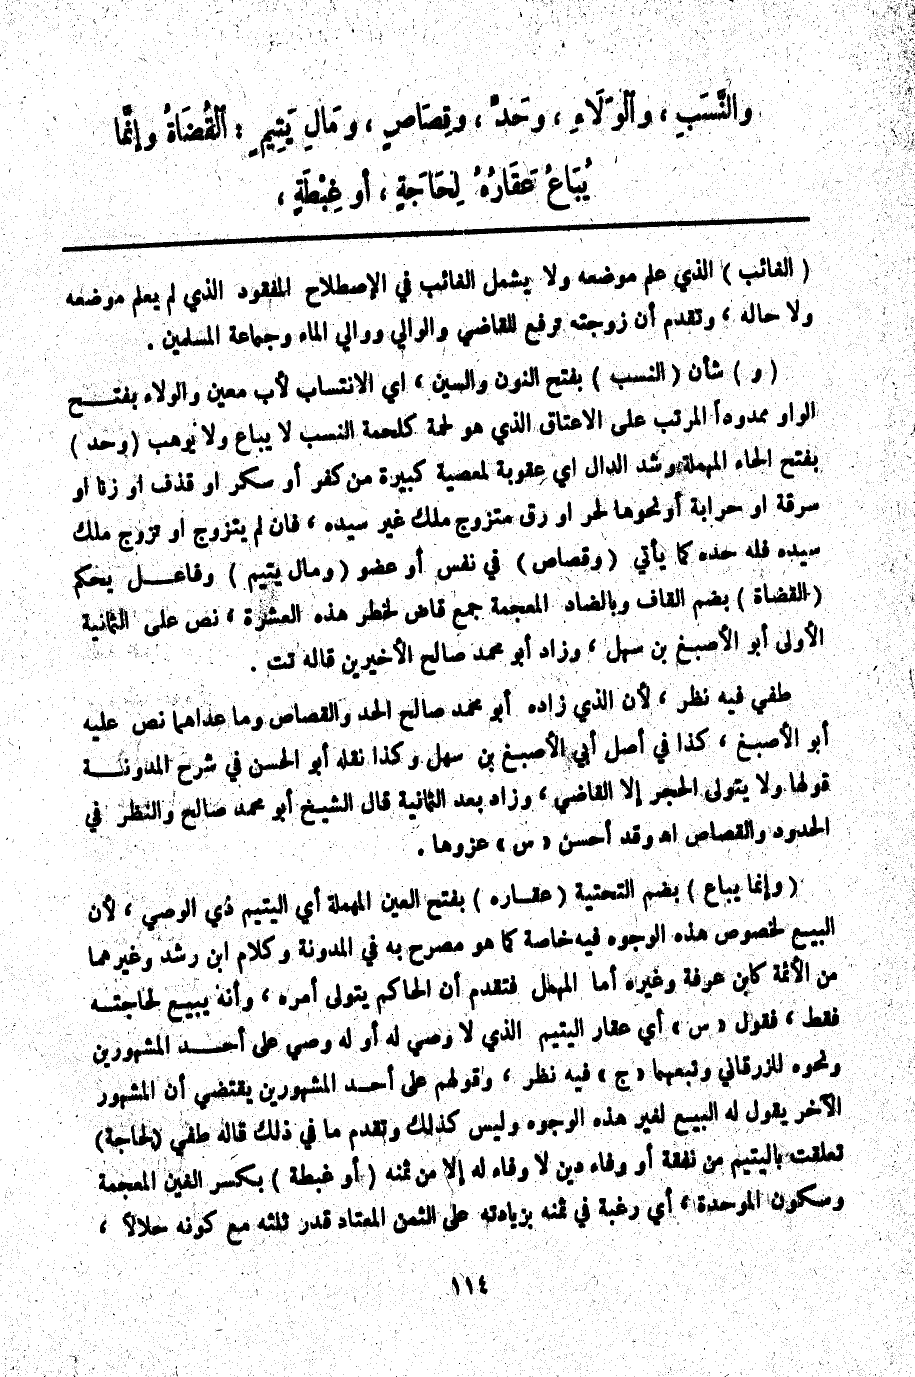 والنَّسَبِ ، وٱلْوَلَاءِ ، وحَدٍّ ، وقِصَاصٍ ، ومَالِ يَتِيمٍ : ٱلْقُضَاةُ وإنَّمَا
يُبَاعُ عَقَارُهُ لِحَاجَةٍ ، أو غِبْطَةٍ ،
( الغائب ) الذي علم موضعه ولا يشمل الغائب في الإصطلاح المفقود الذي لم يعلم موضعه
ولا حاله ، وتقدم أن زوجته ترفع للقاضي والوالي ووالي الماء وجماعة المسلمين .
( و ) شأن ( النسب ) بفتح النون والسين ، اي الانتساب لأب معين والولاء بفتــــح
الواو ممدوداً المرتب على الاعتاق الذي هو لحمة كلحمة النسب لا يباع ولا يوهب ( وحد )
بفتح الحاء المهملة وشد الدال اي عقوبة لمعصية كبيرة من كفر أو سكر او قذف او زنا او
سرقة او حرابة أو نحوها لحر او رق متزوج ملك غير سيده ، فان لم يتزوج او تزوج ملك
سيده فله حده كما يأتي ( وقصاص ) في نفس أو عضو ( ومال يتيم ) وفاعــــل يحكم
( القضاة ) بضم القاف وبالضاد المعجمة جمع قاض لخطر هذه العشرة ، نص على الثمانية
الأولى أبو الأصبغ بن سهل ، وزاد أبو محمد صالح الأخيرين قاله تت .
طفي فيه نظر ، لأن الذي زاده أبو محمد صالح الحد والقصاص وما عداهما نص عليه
أبو الأصبغ ، كذا في أصل أبي الأصبغ بن سهل وكذا نقله أبو الحسن في شرح المدونــــة
قولها ولا يتولى الحجر إلا القاضي ، وزاد بعد الثمانية قال الشيخ أبو محمد صالح والنظر في
الحدود والقصاص اه وقد أحسن « س » عزوها .
( وإنما يباع ) بضم التحتية ( عقــاره ) بفتح العين المهملة أي اليتيم ذي الوصي ، لأن
البيع لخصوص هذه الوجوه فيه خاصة كما هو مصرح به في المدونة وكلام ابن رشد وغيرهما
من الأئمة كابن عرفة وغيره أما المهمل فتقدم أن الحاكم يتولى أمره ، وأنه يبيع لحاجتــه
فقط ، فقول « س » أي عقار اليتيم الذي لا وصي له أو له وصي على أحــــد المشهورين
ونحوه للزرقاني وتبعهما « ج » فيه نظر ، وقولهم على أحــد المشهورين يقتضي أن المشهور
الآخر يقول له البيع لغير هذه الوجوه وليس كذلك وتقدم ما في ذلك قاله طفي (لحاجة)
تعلقت باليتيم من نفقة أو وفاء دين لا وفاء له إلا من ثمنه ( أو غبطة ) بكسر الغين المعجمة
وسكون الموحدة ، أي رغبة في ثمنه بزيادته على الثمن المعتاد قدر ثلثه مع كونه حلالاً ،
١١٤